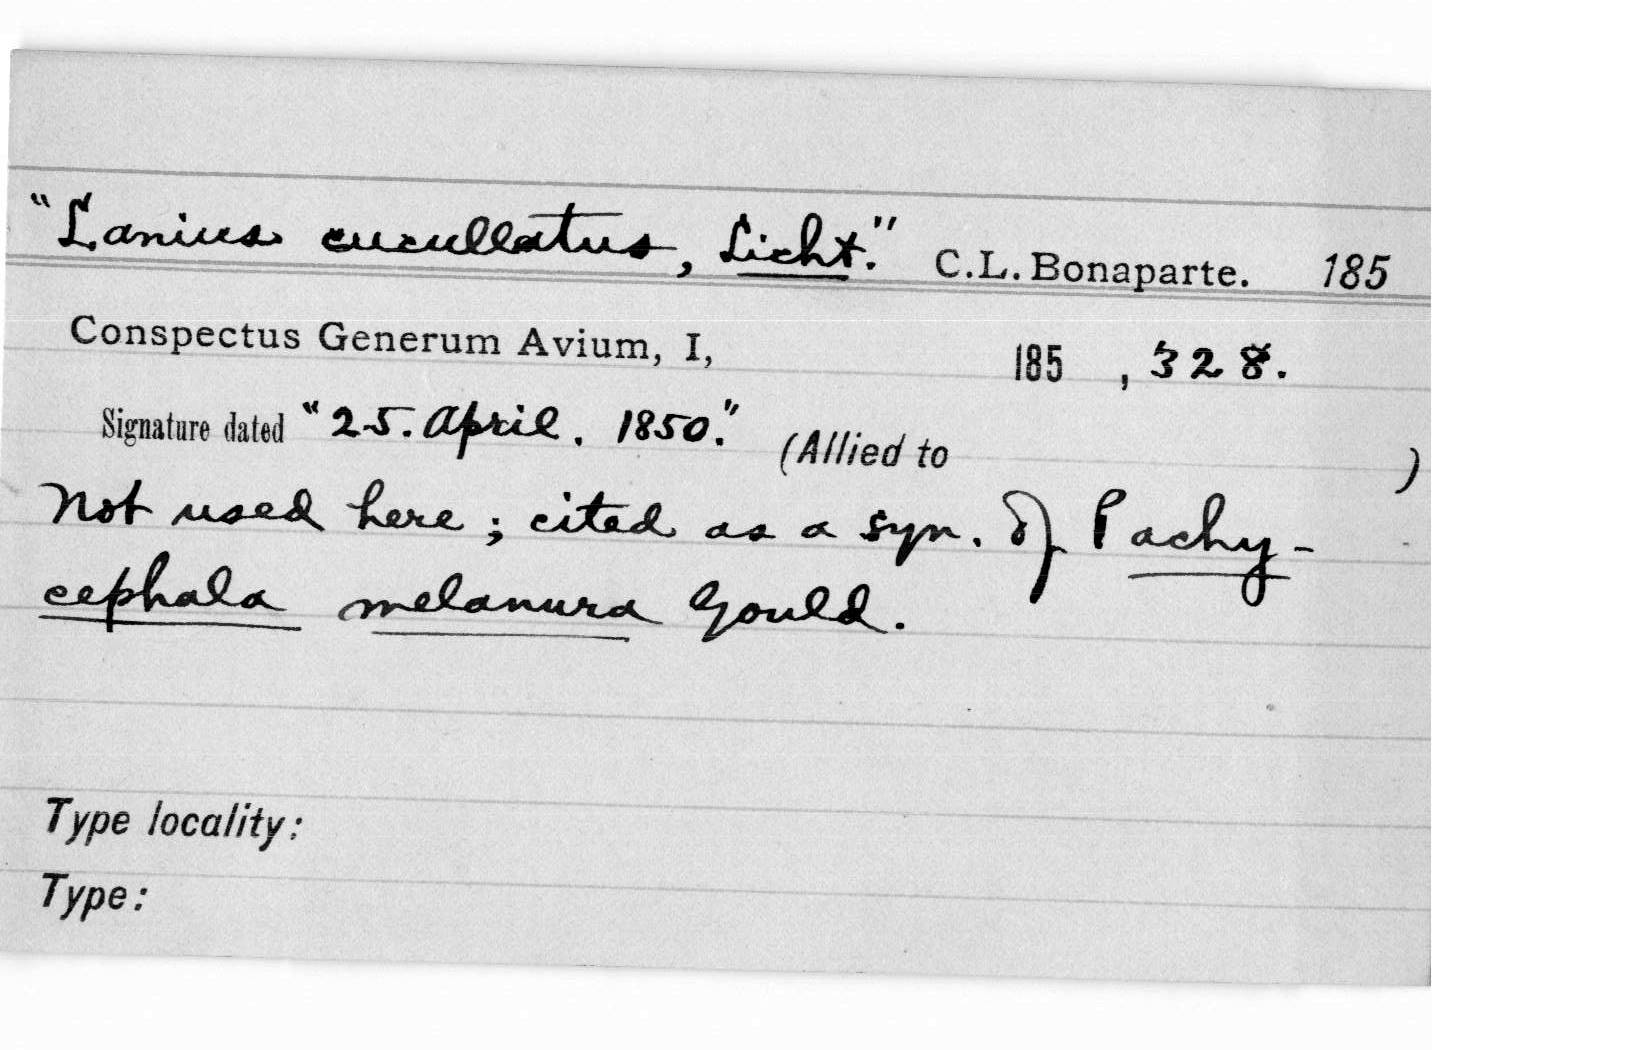 "Lanius cucullatus, Licht." C.L. Bonaparte. 185
Conspectus Generum Avium, I, 185 , 328.
Signature dated "25. April. 1850." (Allied to )
Not used here; cited as a syn. of Pachy-
cephala melanura Gould.
Type locality:
Type: